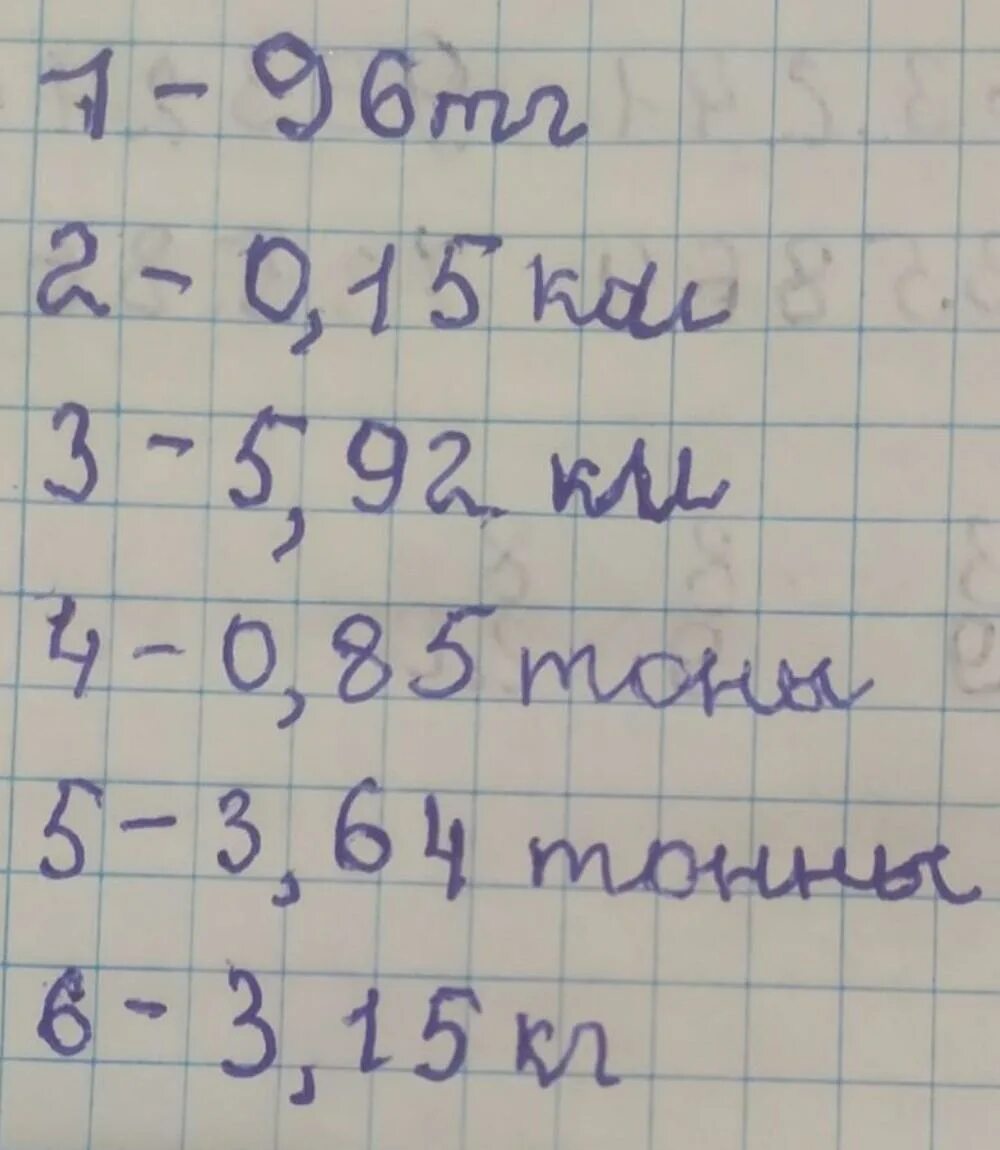 1 - 96 тг
2 - 0,15 км
3 - 5,92 км
4 - 0,85 тоны
5 - 3,64 тонны
6 - 3,15 кг